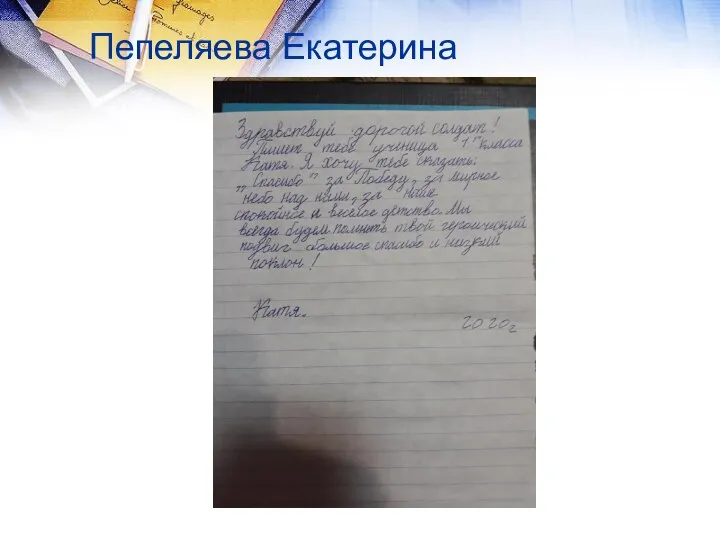 Пепеляева Екатерина
Здравствуй дорогой солдат!
Пишет тебе ученица 1 "класса
Катя. Я хочу тебе сказать:
"Спасибо" за Победу, за мирное
небо над нами, за наше
спокойное и веселое детство. Мы
всегда будем помнить твой героический
подвиг большое спасибо и низкий
поклон!
Катя.
2020г